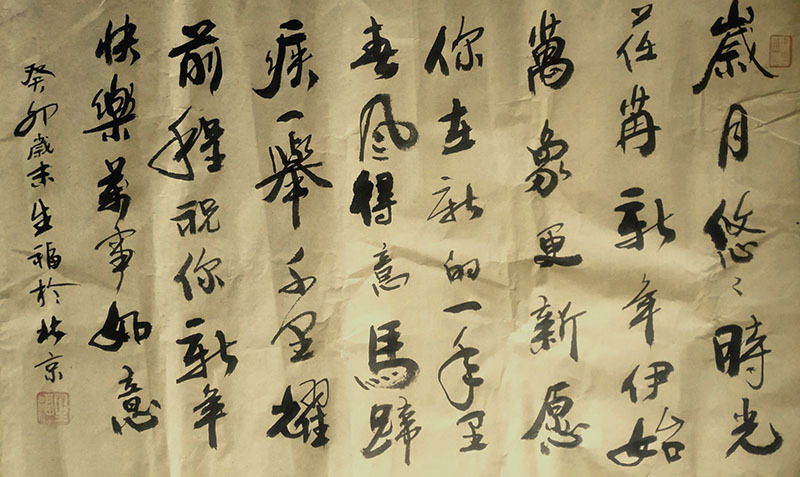 歲月悠々時光
荏苒新年伊始
萬象更新愿
你在新的一年里
春风得意馬蹄
疾一舉千里耀
前程祝你新年
快樂萬事如意
癸卯歲末生福於北京